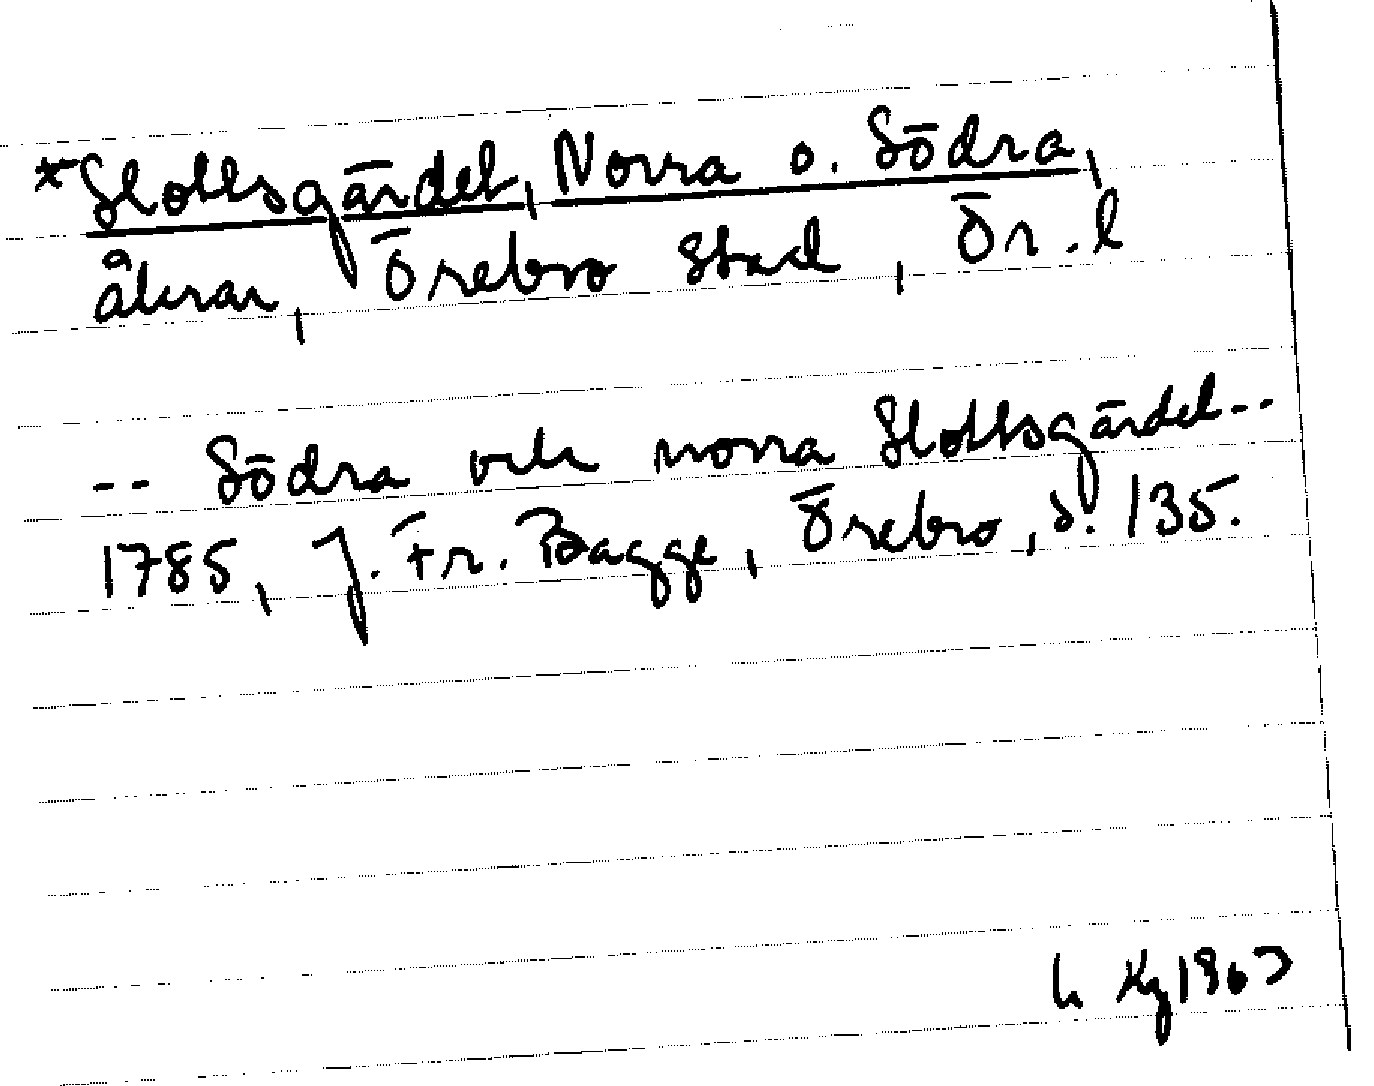 *Slottsgärdet, Norra o. Södra,
åkrar, Örebro stad, Ör. l
-- Södra och norra Slottsgärdet --
1785, J. Fr. Bagge, Örebro, s. 135.